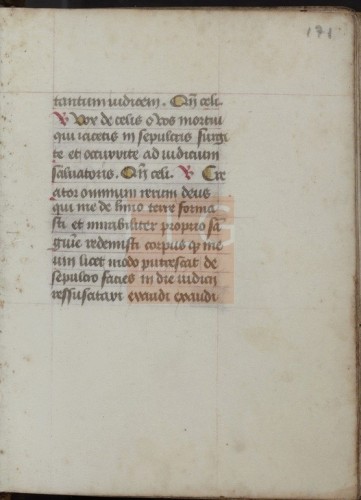 171
tantum iudicem. Qñ celi.
V Vox de celis o vos mortui
qui iacetis in sepulcris surgi
te et occurrite ad iudicium
saluatoris. Qñ celi. V Cre
ator omnium rerum deus
qui me de limo terre forma
sti et mirabiliter proprio sã
guine redemisti corpus q̃ me
um licet modo putrescat de
sepulcro facies in die iudicii
ressuscitari exaudi exaudi